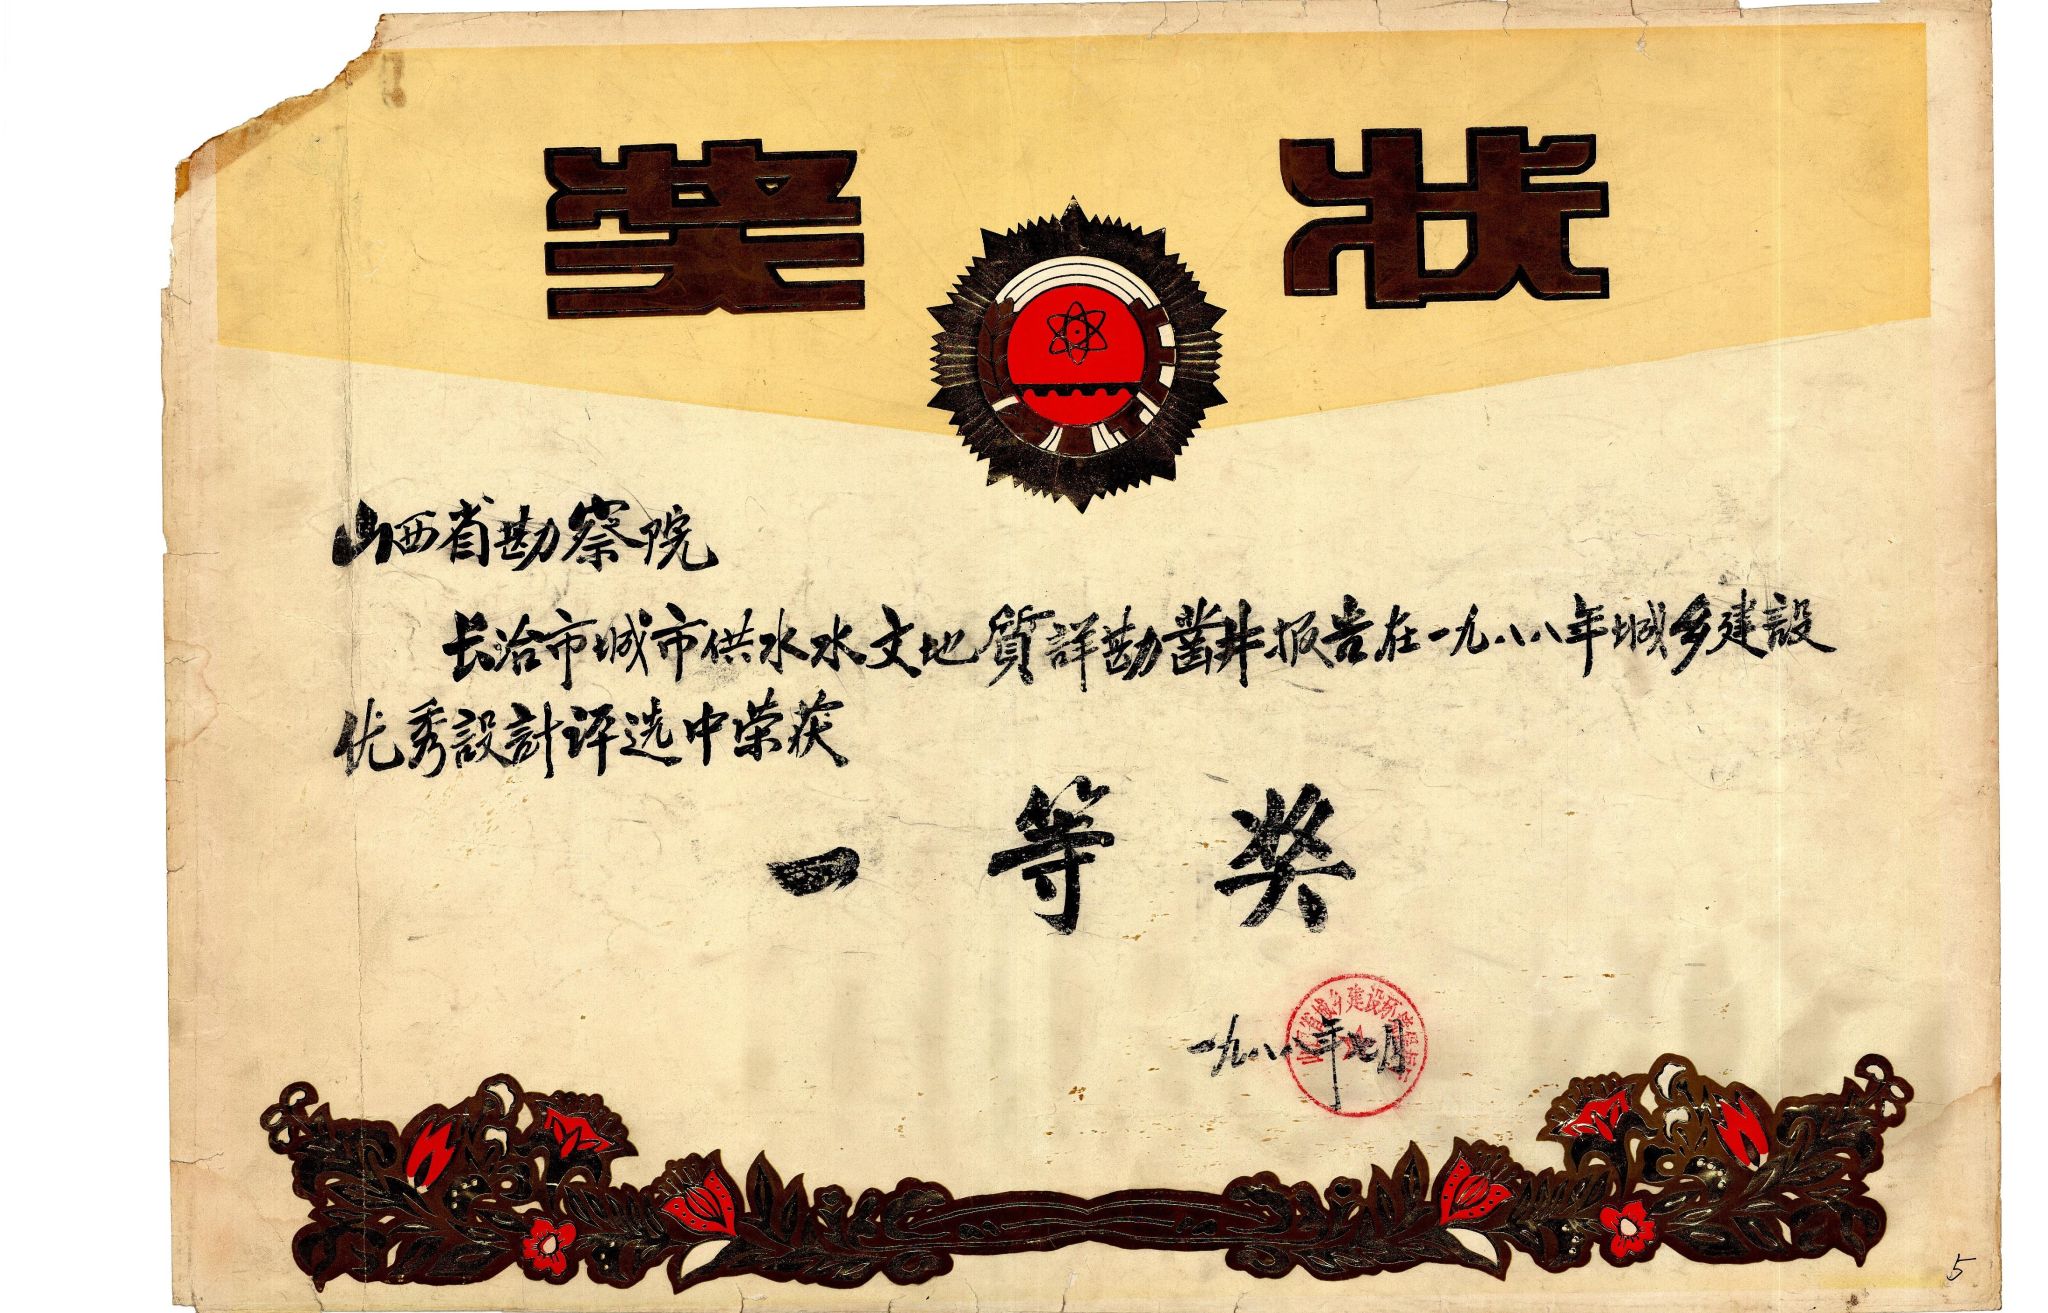 奖 状
山西省勘察院
长治市城市供水水文地質詳勘凿井报告在一九八八年城乡建設
优秀設計评选中荣获
一等奖
山西省城乡建设环境保护厅
一九八八年七月
5